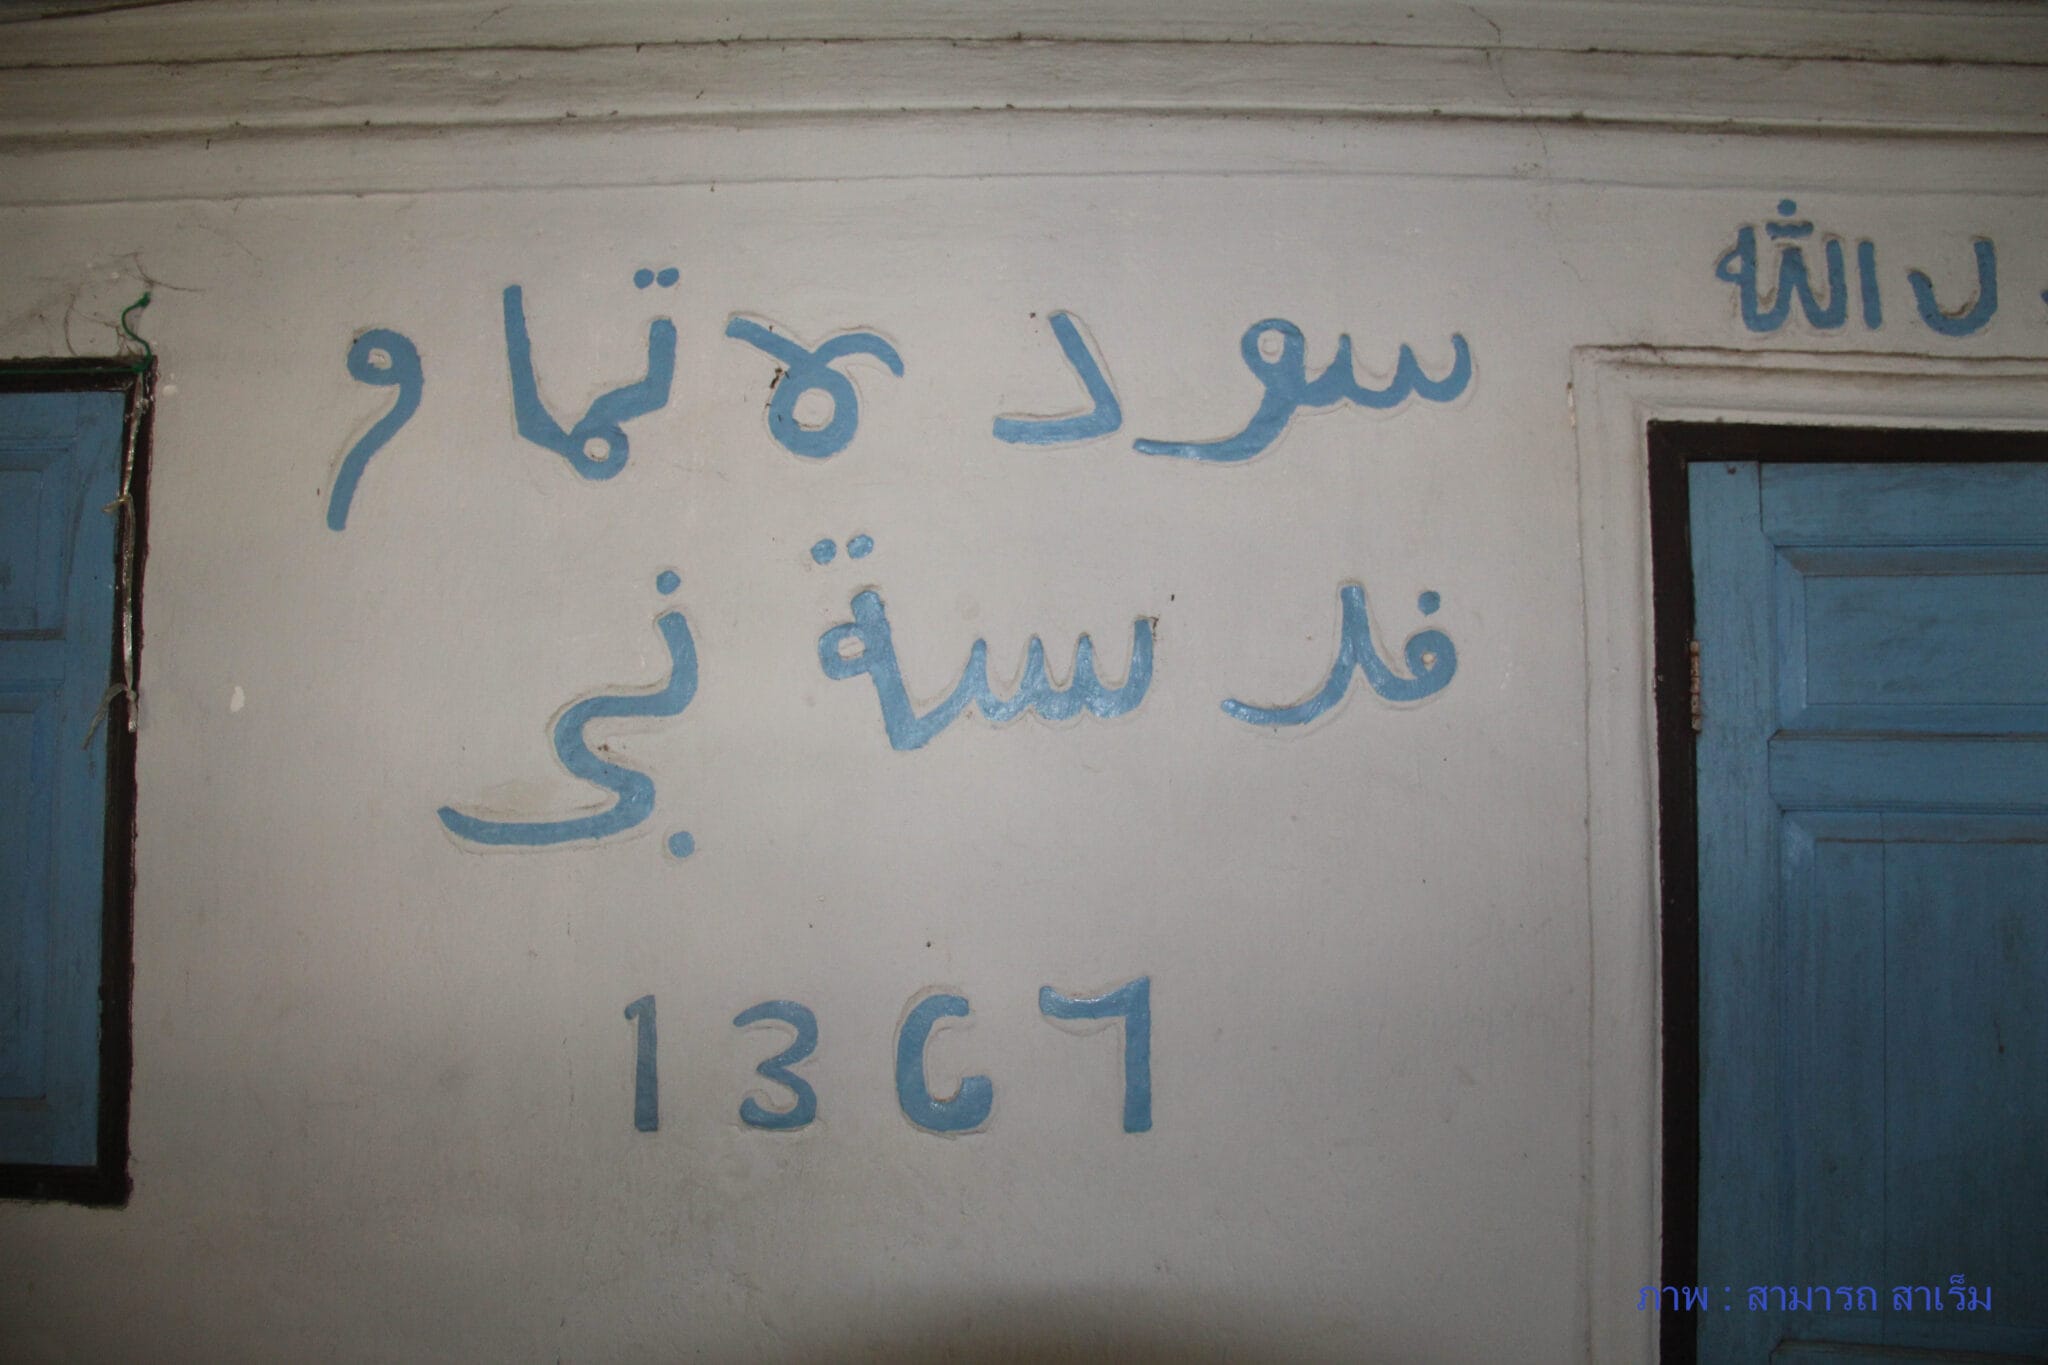 ل الله
سود لاتماو
فد سنة نبي
1367
ภาพ : สามารถ สาเร็ม